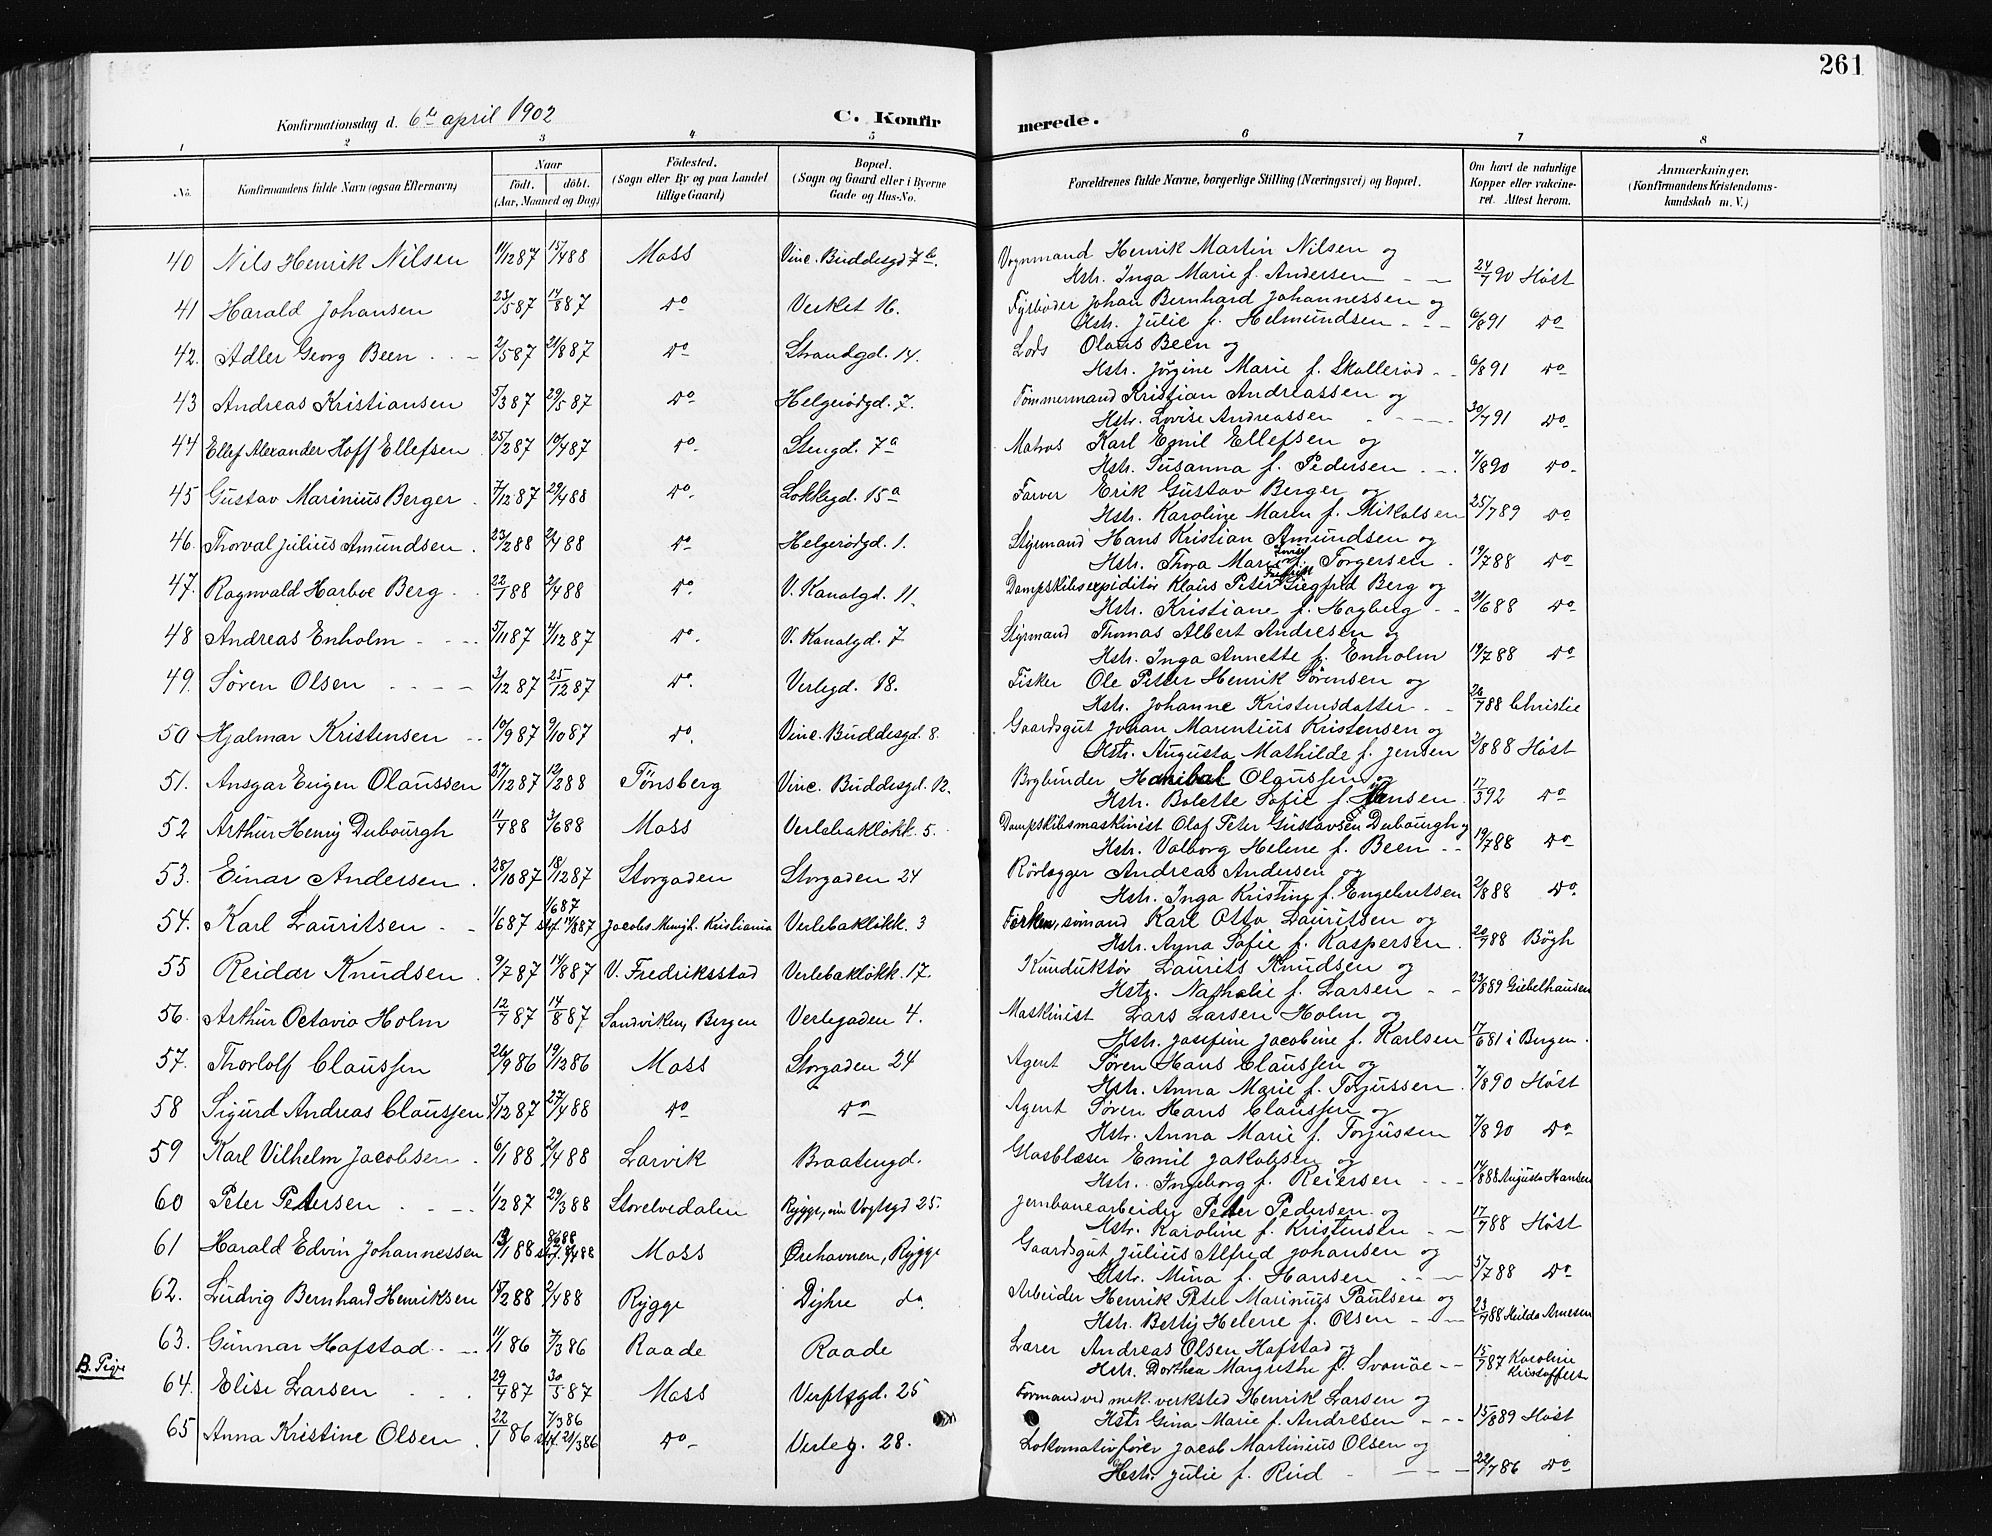 261
Konfirmationsdag d. 6te april 1902
C. Konfirmerede.
1 2 3 4 5 6 7 8
No. Konfirmandens fulde Navn (ogsaa Efternavn) Naar födt. döbt. (Aar, Maaned og Dag) Födested. (Sogn eller By og paa Landet tillige Gaard) Bopæl. (Sogn og Gaard eller i Byerne Gade og Hus-No. Forældrenes fulde Navne, borgerlige Stilling (Næringsvei) og Bopæl. Om havt de naturlige Kopper eller vakcineret. Attest herom. Anmærkninger. (Konfirmandens Kristendomskundskab m. V.)
40 Nils Henrik Nilsen 11/12 87 15/4 88 Moss Vinc. Buddesgd 7b. Vognmand Henrik Martin Nilsen og
Hstr. Inga Marie f. Andersen 24/7 90 Höst
41 Harald Johansen 23/5 87 14/8 87 Do Verket 16. Fyrböder Johan Bernhard Johannessen og
Hstr. Julie f. Helmundsen 6/8 91 Do
42. Adler Georg Been 2/5 87 21/8 87 Do Strandgd. 14. Lods Olaus Been og
Hstr. Jörgine Marie f. Skolleröd 6/8 91 Do
43 Andreas Kristiansen 5/3 87 29/5 87 Do Helgerödgd. 7. Tömmermand Kristian Andreassen og
Hstr. Lovise Andreassen 30/7 91 Do
44 Ellef Alexander Hoff Ellefsen 25/2 87 10/4 87 Do. Stengd. 7a Matros Karl Emil Ellefsen og
Hstr. Susanna f. Pedersen 7/8 90 Do
45 Gustav Marinius Berger 7/12 87 29/4 88 Do. Lokkegd. 15a Farver Erik Gustav Berger og
Hstr. Karoline Maren f. Mikalsen 25/7 89 Do
46. Thorval Julius Amundsen. 23/2 88 2/4 88 Do Helgerödgd. 1. Styrmand Hans Kristian Amundsen og
Hstr. Thora Marie f. Torgersen 19/7 88 Do
47. Ragnvald Harboe Berg 22/1 88 2/4 88 Do. V. Kanalgd. 11. Dampskibsexpiditör Klaus Peter Siegfrid Berg og
Hstr. Kristiane f. Hagberg 21/6 88 Do
48 Andreas Enholm 5/11 87 4/12 87 Do. V. Kanalgd. 7 Styrmand Thomas Albert Andresen og
Hstr. Inga Annette f. Enholm 19/7 88 Do
49. Sören Olsen 3/12 87 25/12 87 Do. Verlegd. 18. Fisker Ole Peter Henrik Sörensen og
Hstr. Johanne Kristensdatter 26/7 88 Christie
50 Hjalmar Kristensen 10/9 87 9/10 87 Do. Vinc. Buddesgd. 8. Gaardsgut Johan Marentius Kristensen og
Hstr. Augusta Mathilde f. Jensen 2/8 88 Höst
51. Ansgar Eugen Olaussen 27/12 87 12/2 88 Tönsberg Vinc. Buddesgd. 12. Bogbinder Hanibal Olaussen og
Hstr. Bolette Sofie f. Jensen 17/3 92 Do
52 Arthur Henry Dubourgh 11/4 88 3/6 88 Moss Verlebakløkk. 5. Dampskibsmaskinist Olaf Peter Gustavsen Dubourgh og
Hstr. Valborg Helene f. Been 19/7 88 Do
53. Einar Andersen 28/10 87 18/12 87 Storgaden Storgaden 24 Rörlægger Andreas Andersen og
Hstr. Inga Kristine f. Engebretsen 2/8 88 Do.
54. Karl Lauritsen 1/6 87 1/6 87 stf. 14/8 87 Jacobs Menigh. Kristiania Verlebakløkk. 3 sömand Karl Otto Lauritsen og
Hstr. Agna Sofie f. Kaspersen 20/7 88 Bögh
55 Reidar Knudsen 9/7 87 14/8 87 V. Fredriksstad Verlebakløkk. 17. Kunduktör Laurits Knudsen og
Hstr. Nathalie f. Larsen 23/8 89 Giebelhausen
56. Arthur Octavio Holm 12/7 87 14/8 87 Sandviken, Bergen Verlegaden 4. Maskinist Lars Larsen Holm og
Hstr. Josefine Jacobine f. Karlsen 17/6 81 i Bergen.
57. Thorlolf Claussen 26/9 86 19/12 86 Moss Storgaden 24 Agent Sören Hans Claussen og
Hstr. Anna Marie f. Torjussen 7/8 90 Höst
58 Sigurd Andreas Claussen 5/12 87 27/4 88 Do Do Agent Sören Hans Claussen og
Hstr. Anna Marie f. Torjussen 7/8 90 Do
59 Karl Vilhelm Jacobsen 6/1 88 2/4 88 Larvik Braatengd. Glasblæser Emil Jakobsen og
Hstr. Ingeborg f. Reiersen 14/8 88 Augusta Hansen
60 Peter Petersen 1/12 87 29/3 88 Storelvedalen Rygge, Vogtsgd 25. Jernbanearbeider Peter Pedersen og
Hstr. Karoline f. Kristensen 17/7 88 Höst
61 Harald Edvin Johannessen 13/1 88 stf. 8/4 88 Moss Örehavnen, Rygge Gaardsgut Julius Alfred Johansen og
Hstr. Mina f. Hansen 5/7 88 Do
62. Ludvig Bernhard Henriksen 17/2 88 2/4 88 Rygge Dyhre do. Arbeider Henrik Peter Marinius Paulsen og
Hstr. Betty Helene f. Olsen 23/7 88 Hilda Arnesen
63. Gunnar Hafstad 11/1 86 7/3 86 Raade Raade Lærer Andreas Olsen Hafstad og
Hstr. Dorthea Margrethe f. Svanöe 15/7 87 Karoline Kristoffers
B. Piger
64. Elise Larsen 29/4 87 30/5 87 Moss Verftsgd. 25 Formand ved mek. verksted Henrik Larsen og
Hstr. Gina Marie f. Andresen 15/8 89 Höst
65 Anna Kristine Olsen 22/1 86 7/3 86 stf. 21/3 86 Do Verleg. 28. Lokomativförer Jacob Martinius Olsen og
Hstr. Julie f. Rud 22/7 86 Do